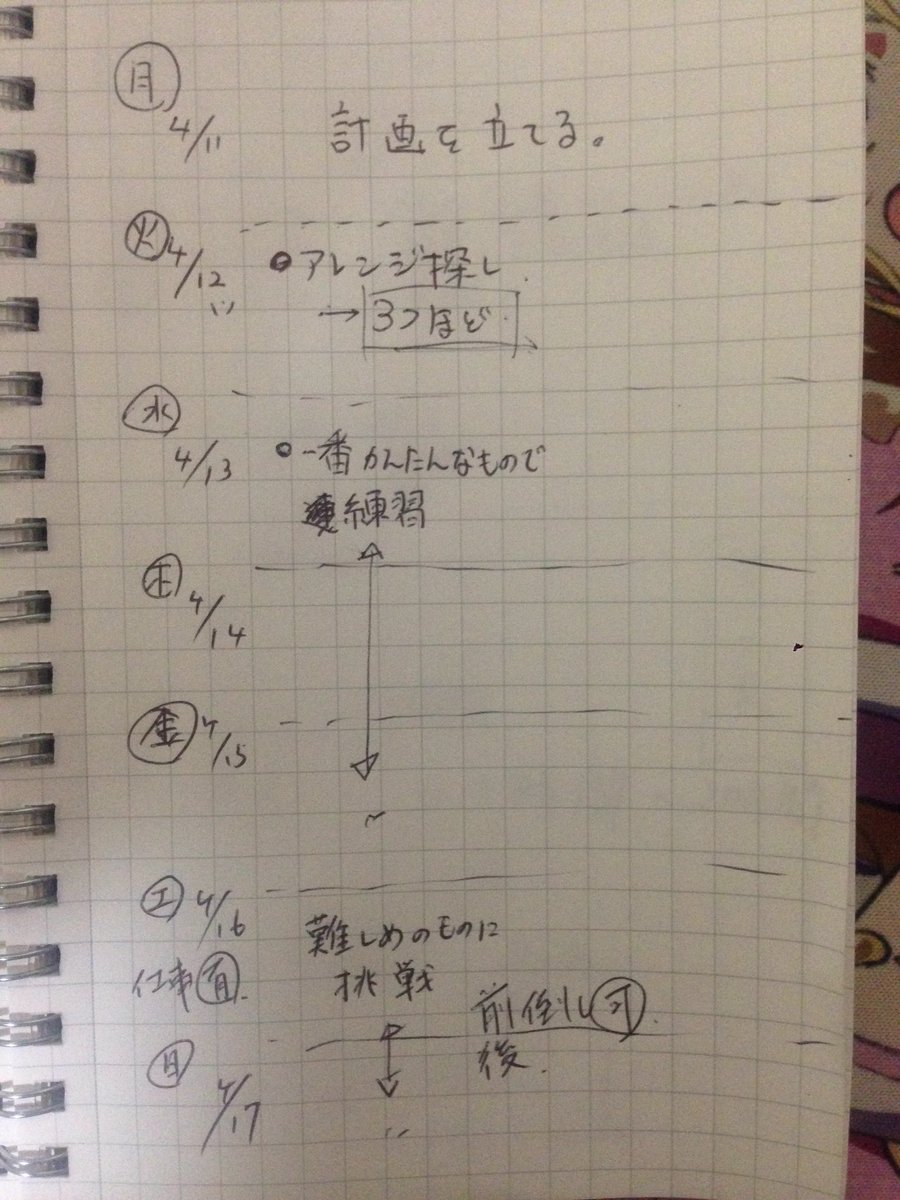 月
4/11 計画を立てる。
火 4/12 ●アレンジ探し
→ 3つほど
水
4/13 ●一番かんたんなもので
練習
木
4/14
金 4/15
土 4/16
難しめのものに
仕事有 挑戦
前倒し可
日 後
4/17